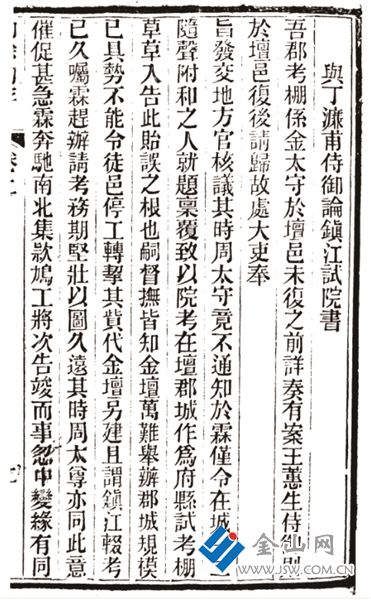 與丁濂甫侍御論鎮江試院書
吾郡考棚係金太守於壇邑未復之前詳奏有案王蕙生侍御則
於壇邑復後請歸故處大吏奉
旨發交地方官核議其時周太守竟不通知於霖僅令在城一二
隨聲附和之人就題稟覆致以院考在壇郡城作為府縣試考棚
草草入告此貽誤之根也嗣督撫皆知金壇萬難舉辦郡城規模
已具勢不能令徒邑停工轉掣其貲代金壇另建且謂鎮江輟考
已久囑霖趕辦請考務期堅壯以圖久遠其時周太尊亦同此意
催促甚急霖奔馳南北集款鳩工將次告竣而事忽中變緣有同
金山网
WWW.JSW.COM.CN